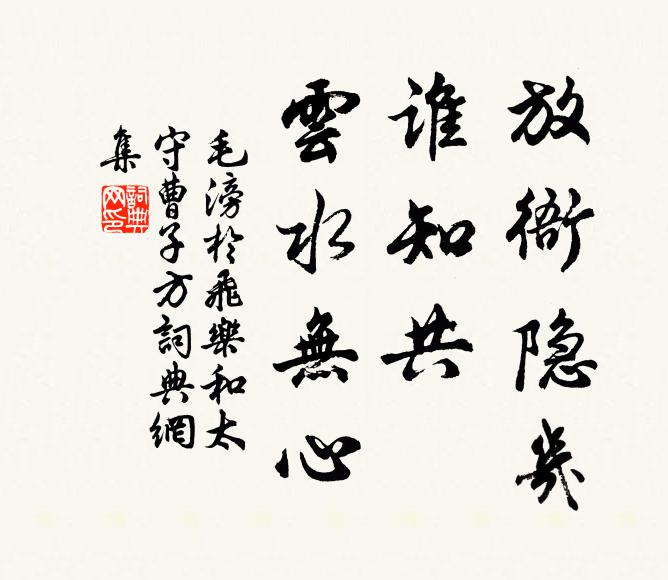 放衙隐几
谁知共
雲水無心
毛滂於飛樂和太
守曹子方詞典網
集
詞典网印